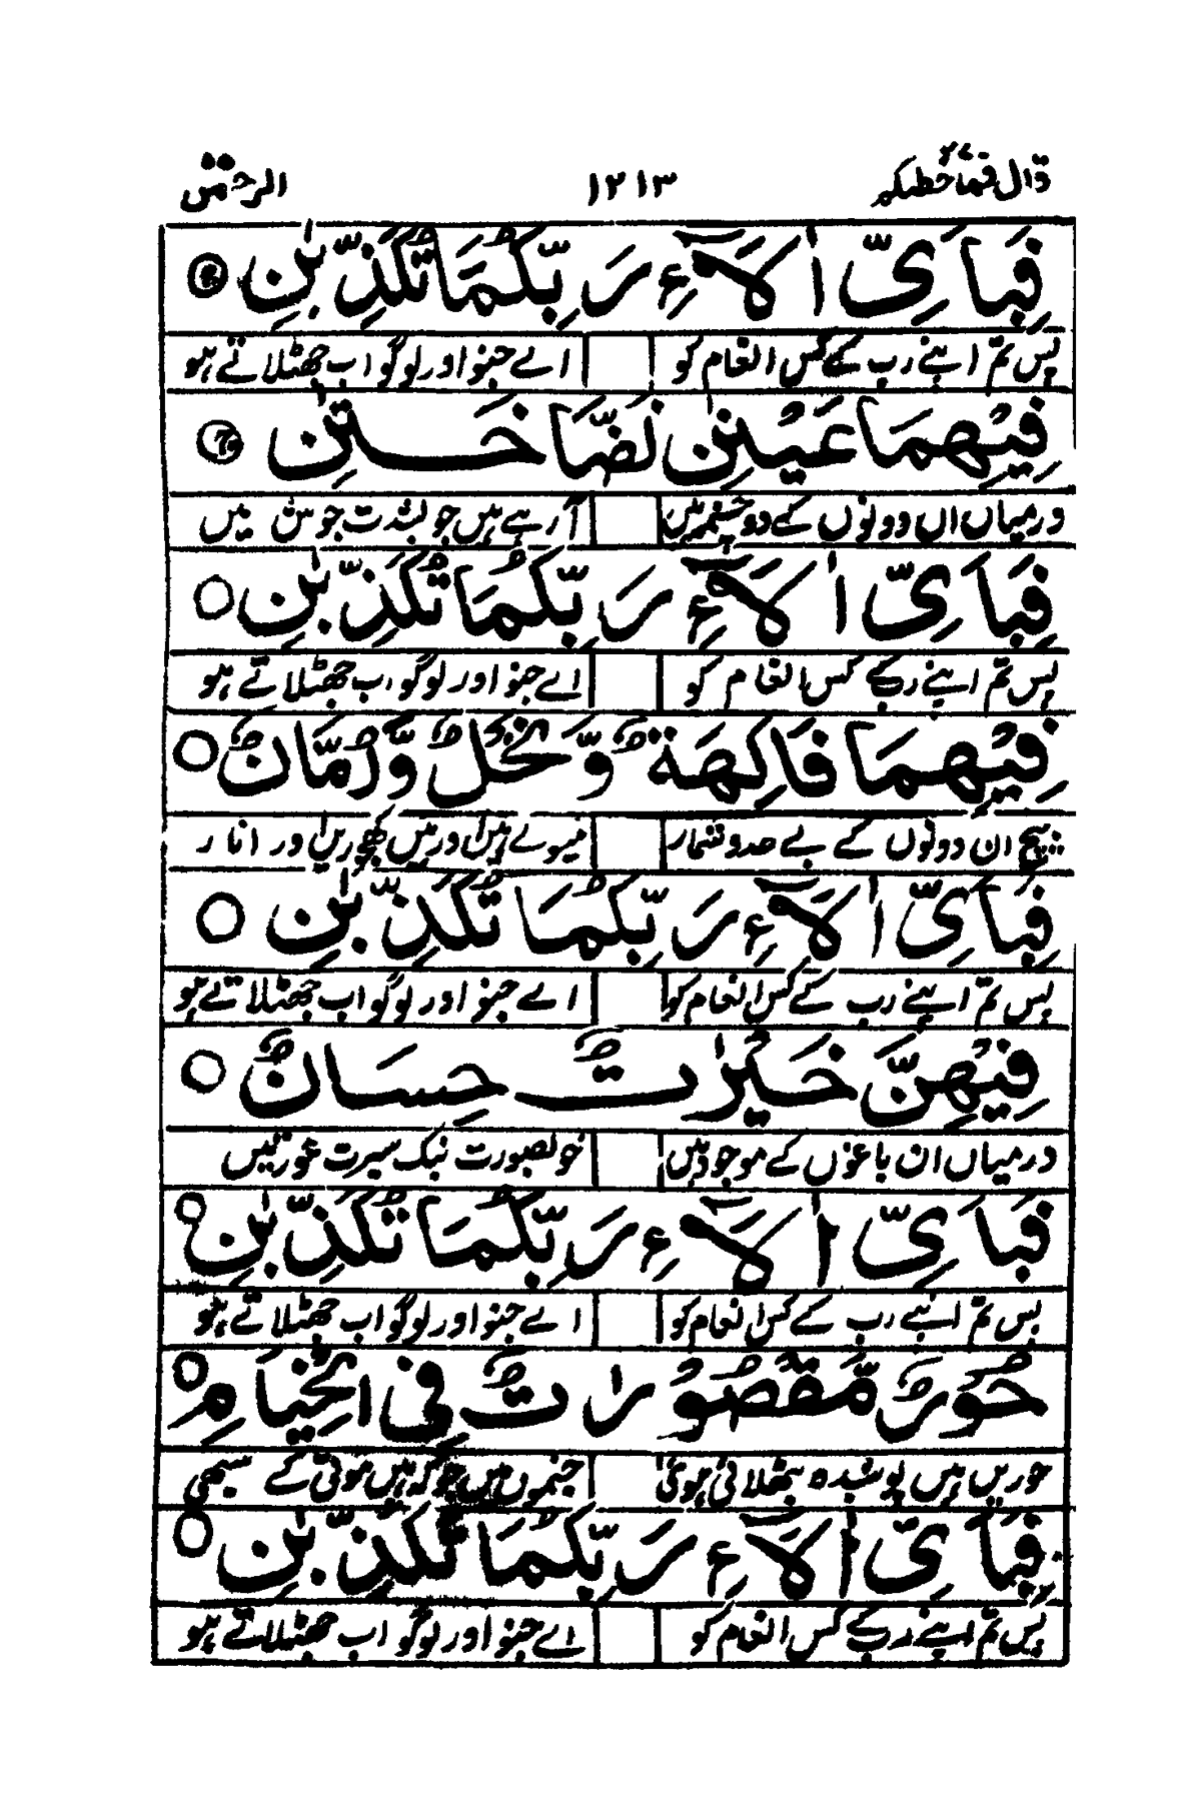 قال فما خطبكم ٢٧ ١٢١٣ الرحمٰن
فَبِاَیِّ اٰلَآءِ رَبِّكُمَا تُكَذِّبٰنِ
پس تم اپنے رب کے کس انعام کو اے جنو اور لوگو اب جھٹلاتے ہو
فِیْهِمَا عَیْنٰنِ نَضَّاخَتٰنِ
درمیاں ان دونوں کے دو چشمہ ہیں آ رہے ہیں جو بشدت جوش میں
فَبِاَیِّ اٰلَآءِ رَبِّكُمَا تُكَذِّبٰنِ
پس تم اپنے رب کے کس انعام کو اے جنو اور لوگو اب جھٹلاتے ہو
فِیْهِمَا فَاكِهَةٌ وَّ نَخْلٌ وَّ رُمَّانٌ
بیچ ان دونوں کے بے حد و شمار میوے ہیں اور ہیں کھجوریں اور انار
فَبِاَیِّ اٰلَآءِ رَبِّكُمَا تُكَذِّبٰنِ
پس تم اپنے رب کے کس انعام کو اے جنو اور لوگو اب جھٹلاتے ہو
فِیْهِنَّ خَیْرٰتٌ حِسَانٌ
درمیاں ان باغوں کے موجود ہیں خوبصورت نیک سیرت عورتیں
فَبِاَیِّ اٰلَآءِ رَبِّكُمَا تُكَذِّبٰنِ
پس تم اپنے رب کے کس انعام کو اے جنو اور لوگو اب جھٹلاتے ہو
حُوْرٌ مَّقْصُوْرٰتٌ فِی الْخِیَامِ
حوریں ہیں پوشیدہ بٹھلائی ہوئی خیموں میں جو کہ ہیں موتی کے سبھی
فَبِاَیِّ اٰلَآءِ رَبِّكُمَا تُكَذِّبٰنِ
پس تم اپنے رب کے کس انعام کو اے جنو اور لوگو اب جھٹلاتے ہو